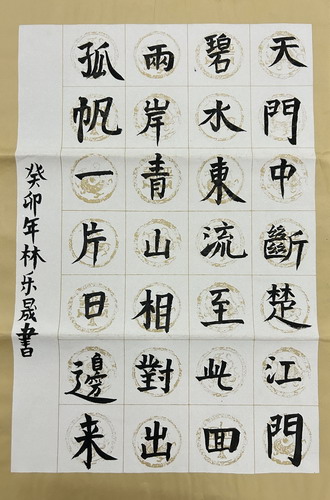 天門中斷楚江門
碧水東流至此回
兩岸青山相對出
孤帆一片日邊来
癸卯年林乐晟書